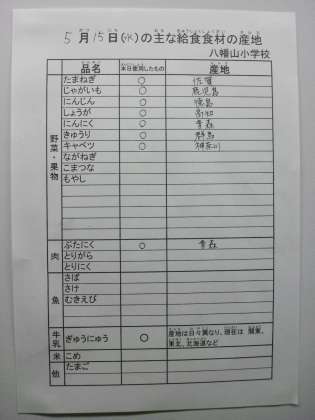 5月15日(水)の主な給食食材の産地
八幡山小学校
品名 本日使用したもの 産地
野菜・果物
たまねぎ ○ 佐賀
じゃがいも ○ 鹿児島
にんじん ○ 徳島
しょうが ○ 高知
にんにく ○ 青森
きゅうり ○ 群馬
キャベツ ○ 神奈川
ながねぎ
こまつな
もやし
肉
ぶたにく ○ 青森
とりがら
とりにく
魚
さば
さけ
むきえび
牛乳
ぎゅうにゅう ○ 産地は日々異なり、現在は 関東、
東北、北海道など
米 こめ
他 たまご